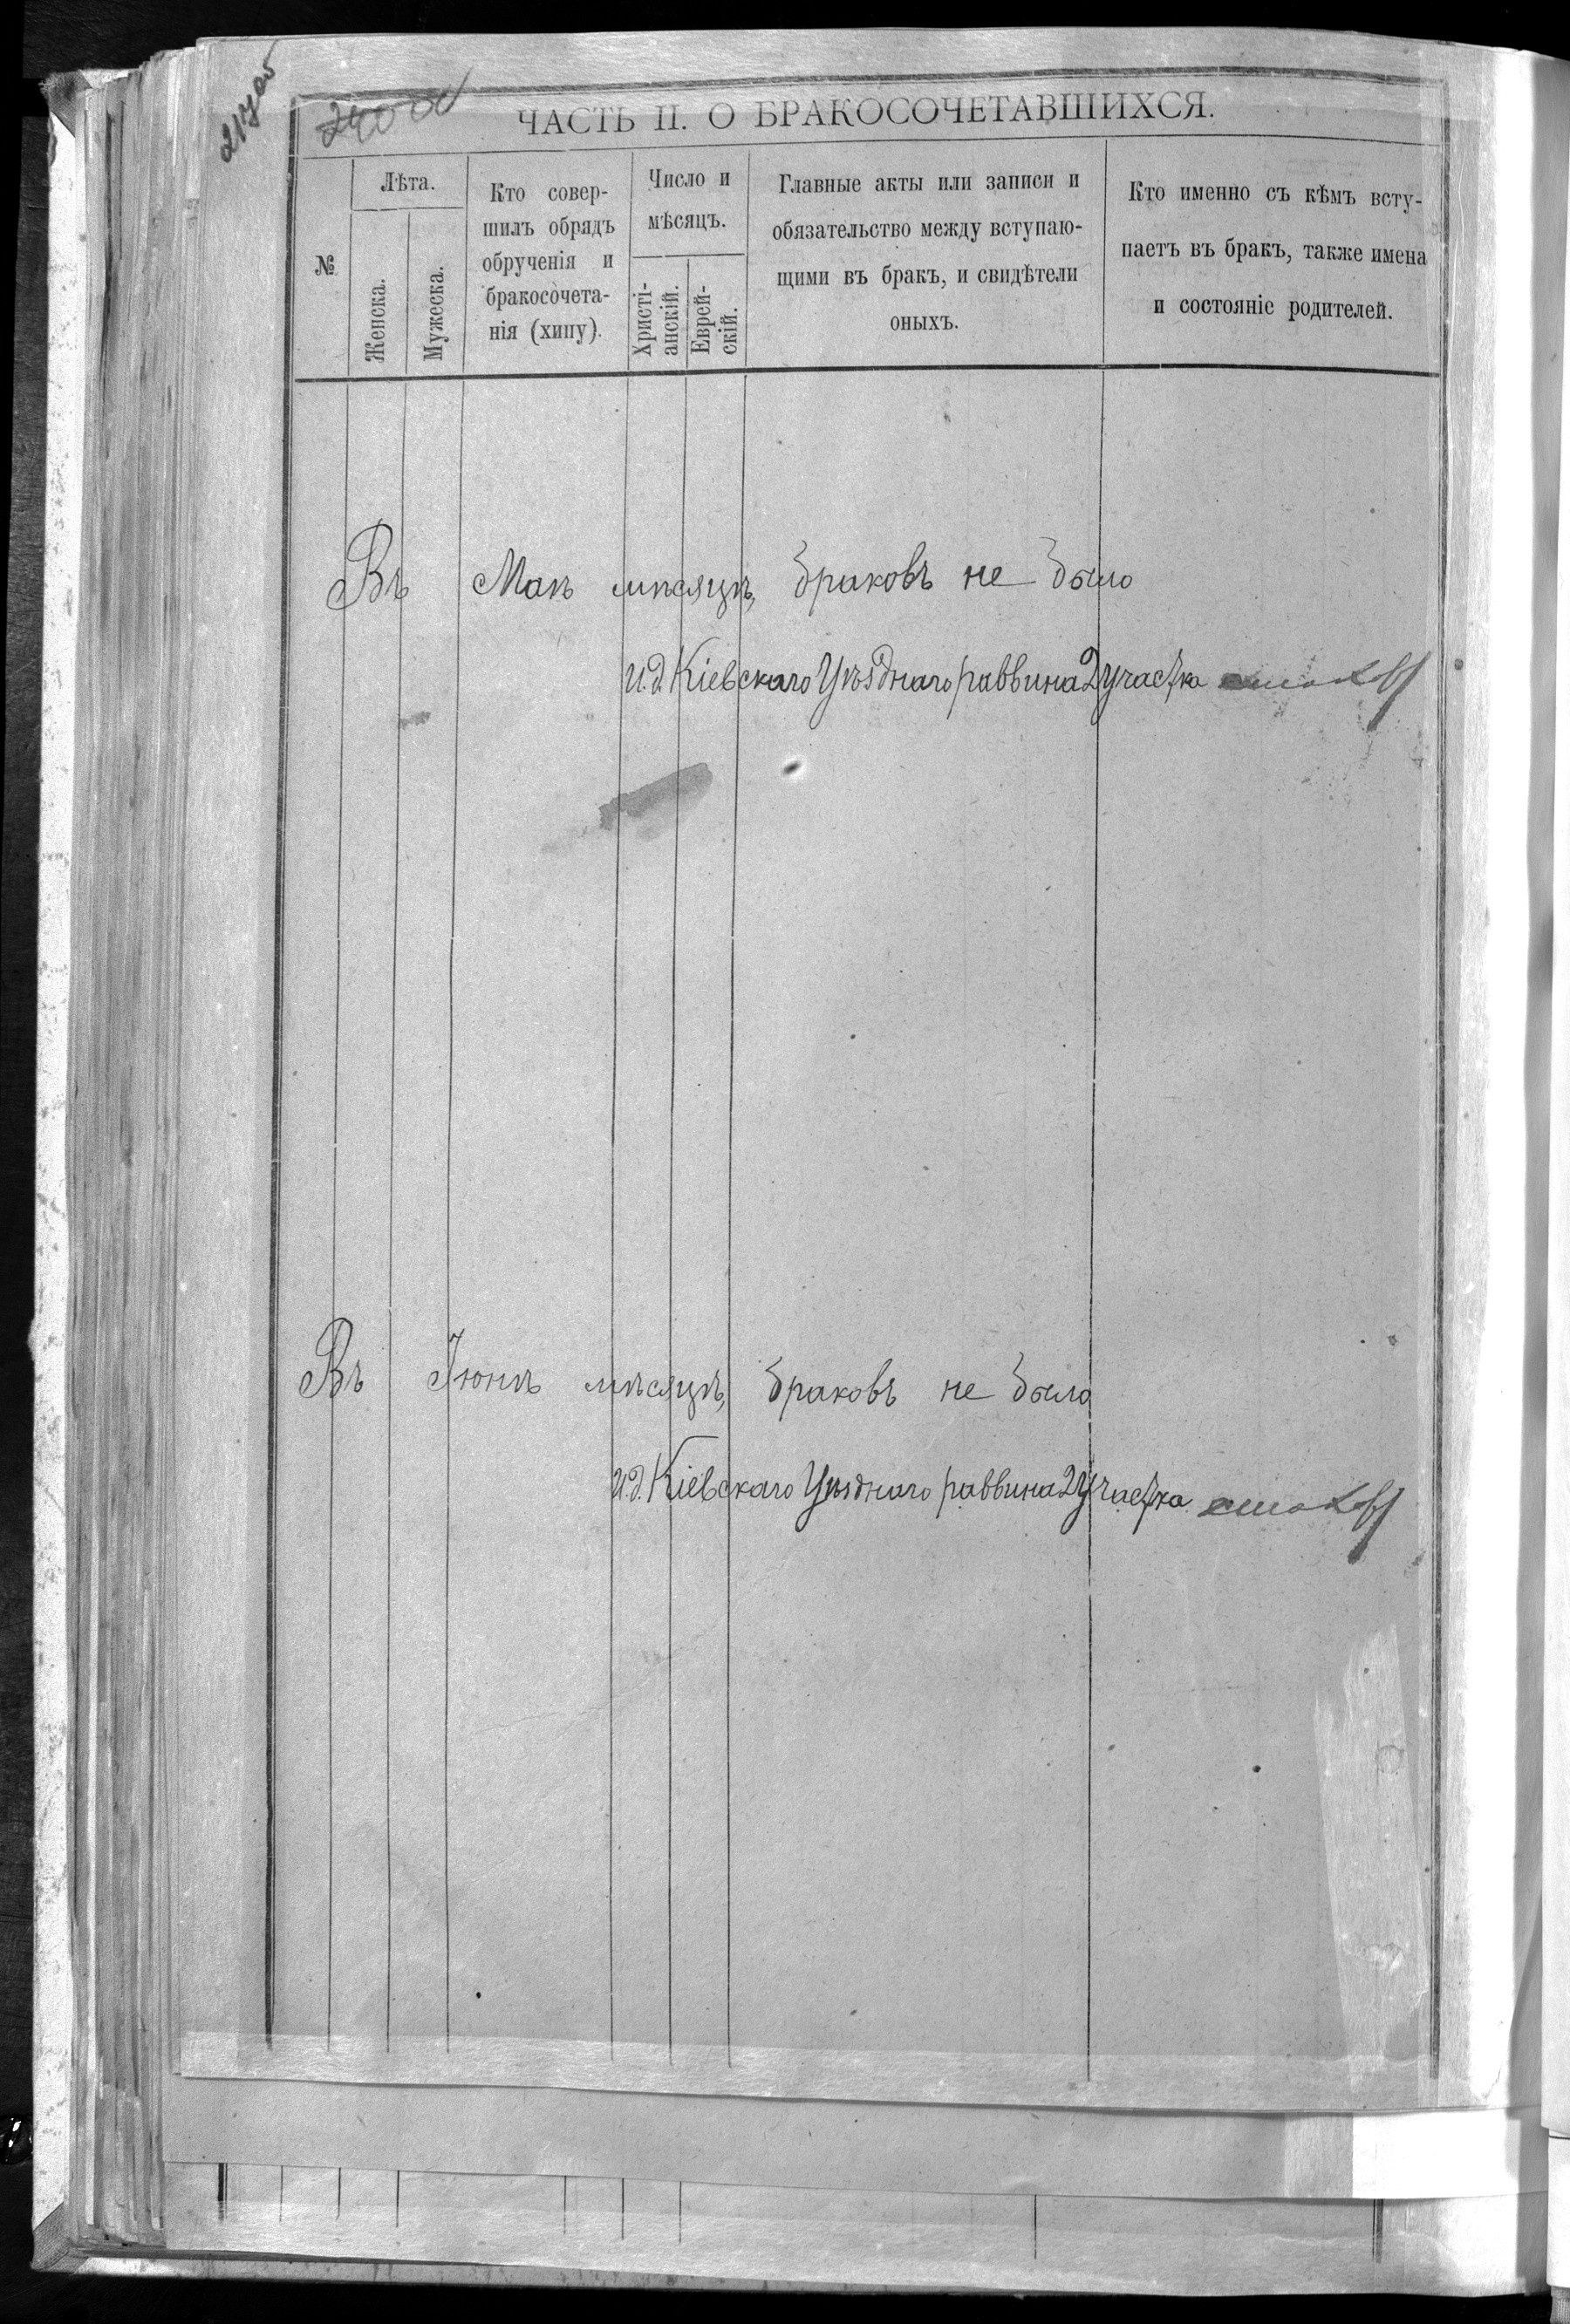 217об
240 об
ЧАСТЬ II. О БРАКОСОЧЕТАВШИХСЯ.
№
Лѣта.
Женска.
Мужеска.
Кто совер-
шилъ обрядъ
обрученія и
бракосочета-
нія (хипу).
Число и
мѣсяцъ.
Христі-
анскій.
Еврей-
скій.
Главные акты или записи и
обязательство между вступаю-
щими въ бракъ, и свидѣтели
оныхъ.
Кто именно съ кѣмъ всту-
паетъ въ бракъ, также имена
и состояніе родителей.
Въ Маѣ мѣсяцѣ, браковъ не было
И.д. Кіевскаго Уѣзднаго раввина 2 участка
Въ Іюнѣ мѣсяцѣ, браковъ не было
И.д. Кіевскаго Уѣзднаго раввина 2 участка